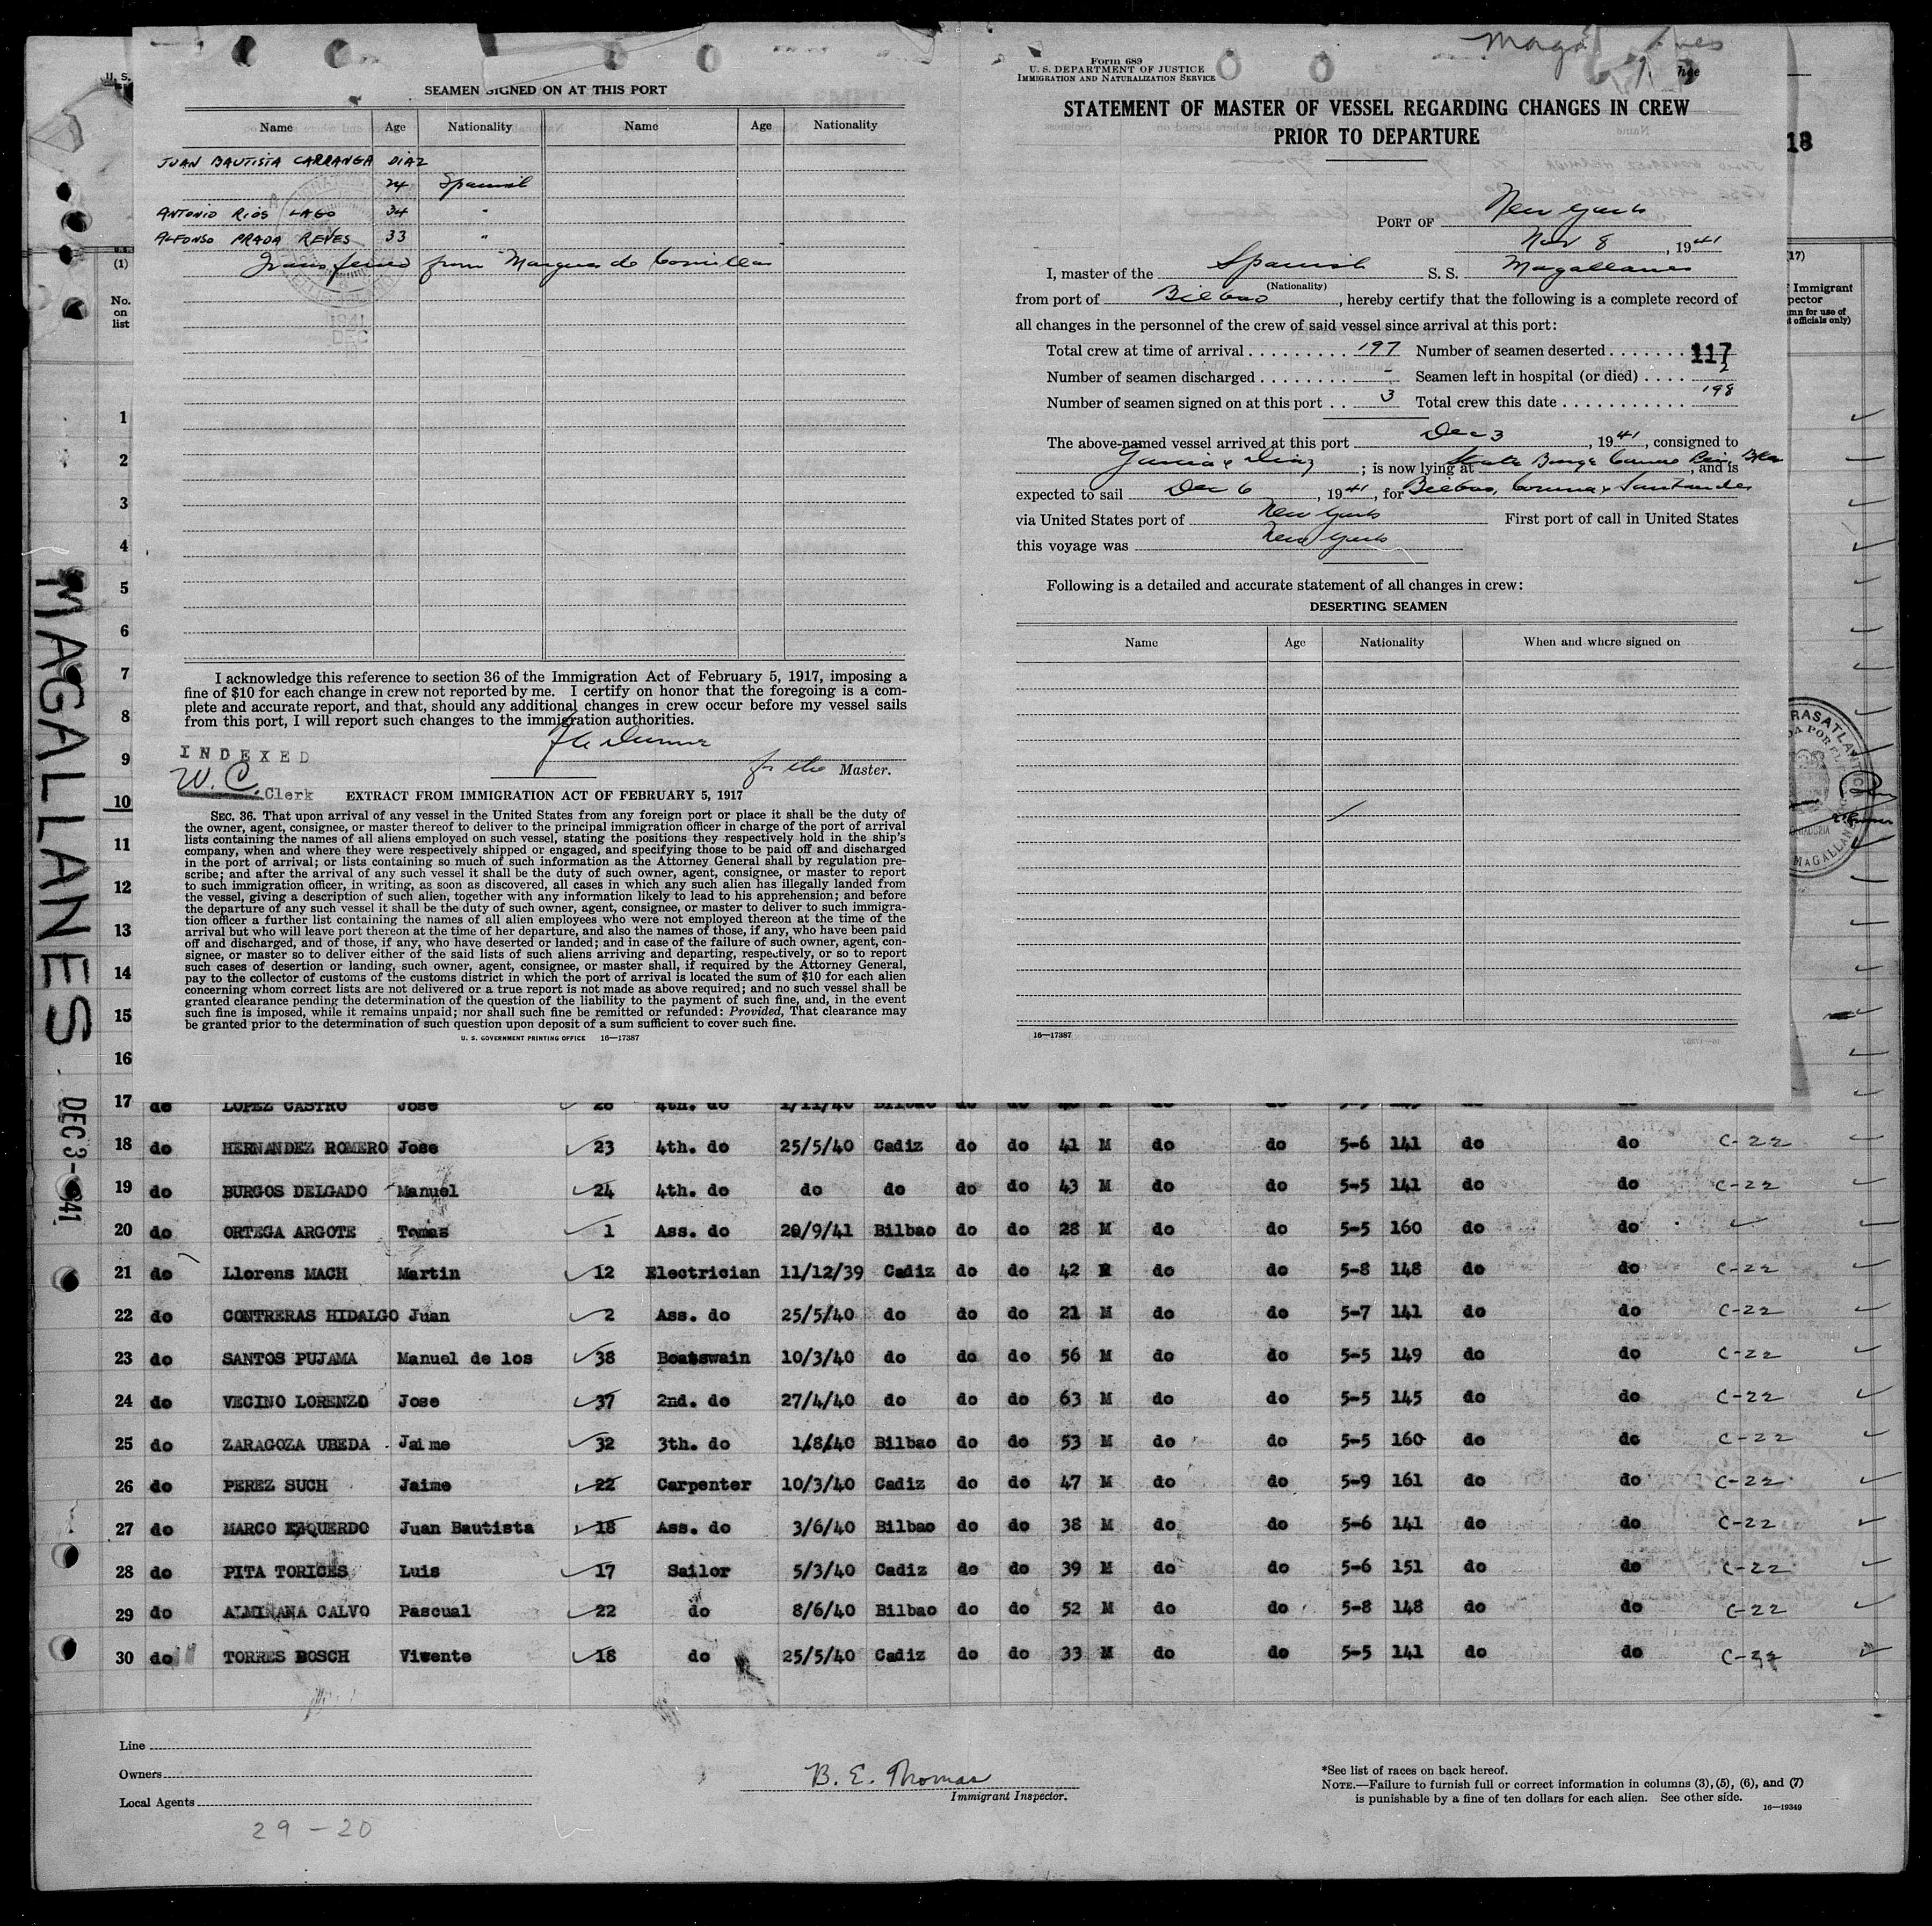 SEAMEN SIGNED ON AT THIS PORT
Name Age Nationality Name Age Nationality
JUAN BAUTISTA CARRANGA DIAZ
24 Spanish
ANTONIO RIOS LAGO 34 "
ALFONSO PRADA REYES 33 "
Transferred from Marques de Comillas
1941
DEC
I acknowledge this reference to section 36 of the Immigration Act of February 5, 1917, imposing a
fine of $10 for each change in crew not reported by me. I certify on honor that the foregoing is a com-
plete and accurate report, and that, should any additional changes in crew occur before my vessel sails
from this port, I will report such changes to the immigration authorities.
for the Master.
INDEXED
W. C. Clerk
EXTRACT FROM IMMIGRATION ACT OF FEBRUARY 5, 1917
SEC. 36. That upon arrival of any vessel in the United States from any foreign port or place it shall be the duty of
the owner, agent, consignee, or master thereof to deliver to the principal immigration officer in charge of the port of arrival
lists containing the names of all aliens employed on such vessel, stating the positions they respectively hold in the ship's
company, when and where they were respectively shipped or engaged, and specifying those to be paid off and discharged
in the port of arrival; or lists containing so much of such information as the Attorney General shall by regulation pre-
scribe; and after the arrival of any such vessel it shall be the duty of such owner, agent, consignee, or master to report
to such immigration officer, in writing, as soon as discovered, all cases in which any such alien has illegally landed from
the vessel, giving a description of such alien, together with any information likely to lead to his apprehension; and before
the departure of any such vessel it shall be the duty of such owner, agent, consignee, or master to deliver to such immigra-
tion officer a further list containing the names of all alien employees who were not employed thereon at the time of the
arrival but who will leave port thereon at the time of her departure, and also the names of those, if any, who have been paid
off and discharged, and of those, if any, who have deserted or landed; and in case of the failure of such owner, agent, con-
signee, or master so to deliver either of the said lists of such aliens arriving and departing, respectively, or so to report
such cases of desertion or landing, such owner, agent, consignee, or master shall, if required by the Attorney General,
pay to the collector of customs of the customs district in which the port of arrival is located the sum of $10 for each alien
concerning whom correct lists are not delivered or a true report is not made as above required; and no such vessel shall be
granted clearance pending the determination of the question of the liability to the payment of such fine, and, in the event
such fine is imposed, while it remains unpaid; nor shall such fine be remitted or refunded: Provided, That clearance may
be granted prior to the determination of such question upon deposit of a sum sufficient to cover such fine.
U. S. GOVERNMENT PRINTING OFFICE 16—17387
Form 689
U. S. DEPARTMENT OF JUSTICE
IMMIGRATION AND NATURALIZATION SERVICE
STATEMENT OF MASTER OF VESSEL REGARDING CHANGES IN CREW
PRIOR TO DEPARTURE
PORT OF New York
Nov 8, 1941
I, master of the Spanish S. S. Magallanes
(Nationality)
from port of Bilbao, hereby certify that the following is a complete record of
all changes in the personnel of the crew of said vessel since arrival at this port:
Total crew at time of arrival 197 Number of seamen deserted
117
Number of seamen discharged - Seamen left in hospital (or died) 2
Number of seamen signed on at this port 3 Total crew this date 198
The above-named vessel arrived at this port Dec 3, 1941, consigned to
Garcia & Diaz; is now lying at, and is
expected to sail Dec 6, 1941, for Bilbao, Coruna & Santander
via United States port of New York First port of call in United States
this voyage was New York
Following is a detailed and accurate statement of all changes in crew:
DESERTING SEAMEN
Name Age Nationality When and where signed on
16—17387
U. S.
18
(1)
No. on list
(17)
Immigrant
officials only)
1
2
3
4
5
6
7
8
9
10
11
12
13
14
15
16
MAGALLANES
DEC 3-1941
17 do LOPEZ CASTRO Jose 4th. do 1/11/40 Bilbao do do
18 do HERNANDEZ ROMERO Jose 23 4th. do 25/5/40 Cadiz do do 41 M do do 5-6 141 do do C-22
19 do BURGOS DELGADO Manuel 24 4th. do do do do do 43 M do do 5-5 141 do do C-22
20 do ORTEGA ARGOTE Tomas 1 Ass. do 20/9/41 Bilbao do do 28 M do do 5-5 160 do do
21 do Llorens MACH Martin 12 Electrician 11/12/39 Cadiz do do 42 M do do 5-8 148 do do C-22
22 do CONTRERAS HIDALGO Juan 2 Ass. do 25/5/40 do do do 21 M do do 5-7 141 do do C-22
23 do SANTOS PUJAMA Manuel de los 38 Boatswain 10/3/40 do do do 56 M do do 5-5 149 do do C-22
24 do VECINO LORENZO Jose 37 2nd. do 27/4/40 do do do 63 M do do 5-5 145 do do C-22
25 do ZARAGOZA UBEDA Jaime 32 3th. do 1/8/40 Bilbao do do 53 M do do 5-5 160 do do C-22
26 do PEREZ SUCH Jaime 22 Carpenter 10/3/40 Cadiz do do 47 M do do 5-9 161 do do C-22
27 do MARCO ESQUERDO Juan Bautista 18 Ass. do 3/6/40 Bilbao do do 38 M do do 5-6 141 do do C-22
28 do PITA TORICES Luis 17 Sailor 5/3/40 Cadiz do do 39 M do do 5-6 151 do do C-22
29 do ALMIÑANA CALVO Pascual 22 do 8/6/40 Bilbao do do 52 M do do 5-8 148 do do C-22
30 do TORRES BOSCH Vicente 18 do 25/5/40 Cadiz do do 33 M do do 5-5 141 do do C-22
Line
Owners
Local Agents
29-20
B. E. Thomas
Immigrant Inspector.
*See list of races on back hereof.
NOTE.—Failure to furnish full or correct information in columns (3), (5), (6), and (7)
is punishable by a fine of ten dollars for each alien. See other side.
16—19349